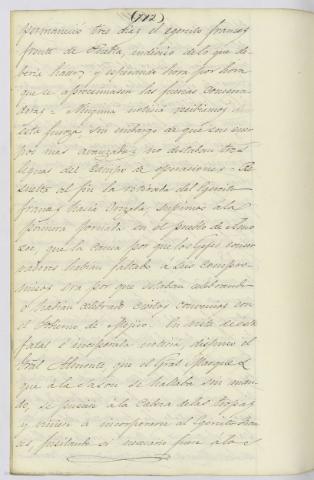 (112)
permaneció tres dias el egercito frances
frente de Puebla, indeciso de lo que de-
beria hacer, y esperando hora por hora
que se aproximasen las fuerzas conserva-
doras - Ninguna noticia recibimos de
esta fuerza, sin embargo de que sus cuer-
pos mas avanzados, no distaban tres
leguas del campo de operaciones - Re-
suelta al fin la retirada del Egercito
frances hacia Orizaba, supimos a la
primera jornada en el pueblo de Amo-
zoc, que la causa por que los Gefes conser-
vadores habian faltado á sus compro-
misos era por que estaban celebrando
ó habian celebrado ciertos convenios con
el Gobierno de Mejico. En vista de esta
fatal é inesperada noticia, dispuso el
Gral Almonte, que el Gral Marquez
que á la sason se hallaba sin man-
do, se pusiera á la cabeza de las tropas
y viniese á incorporarse al Egercito fran-
ces, fusilando si necesario fuere á los